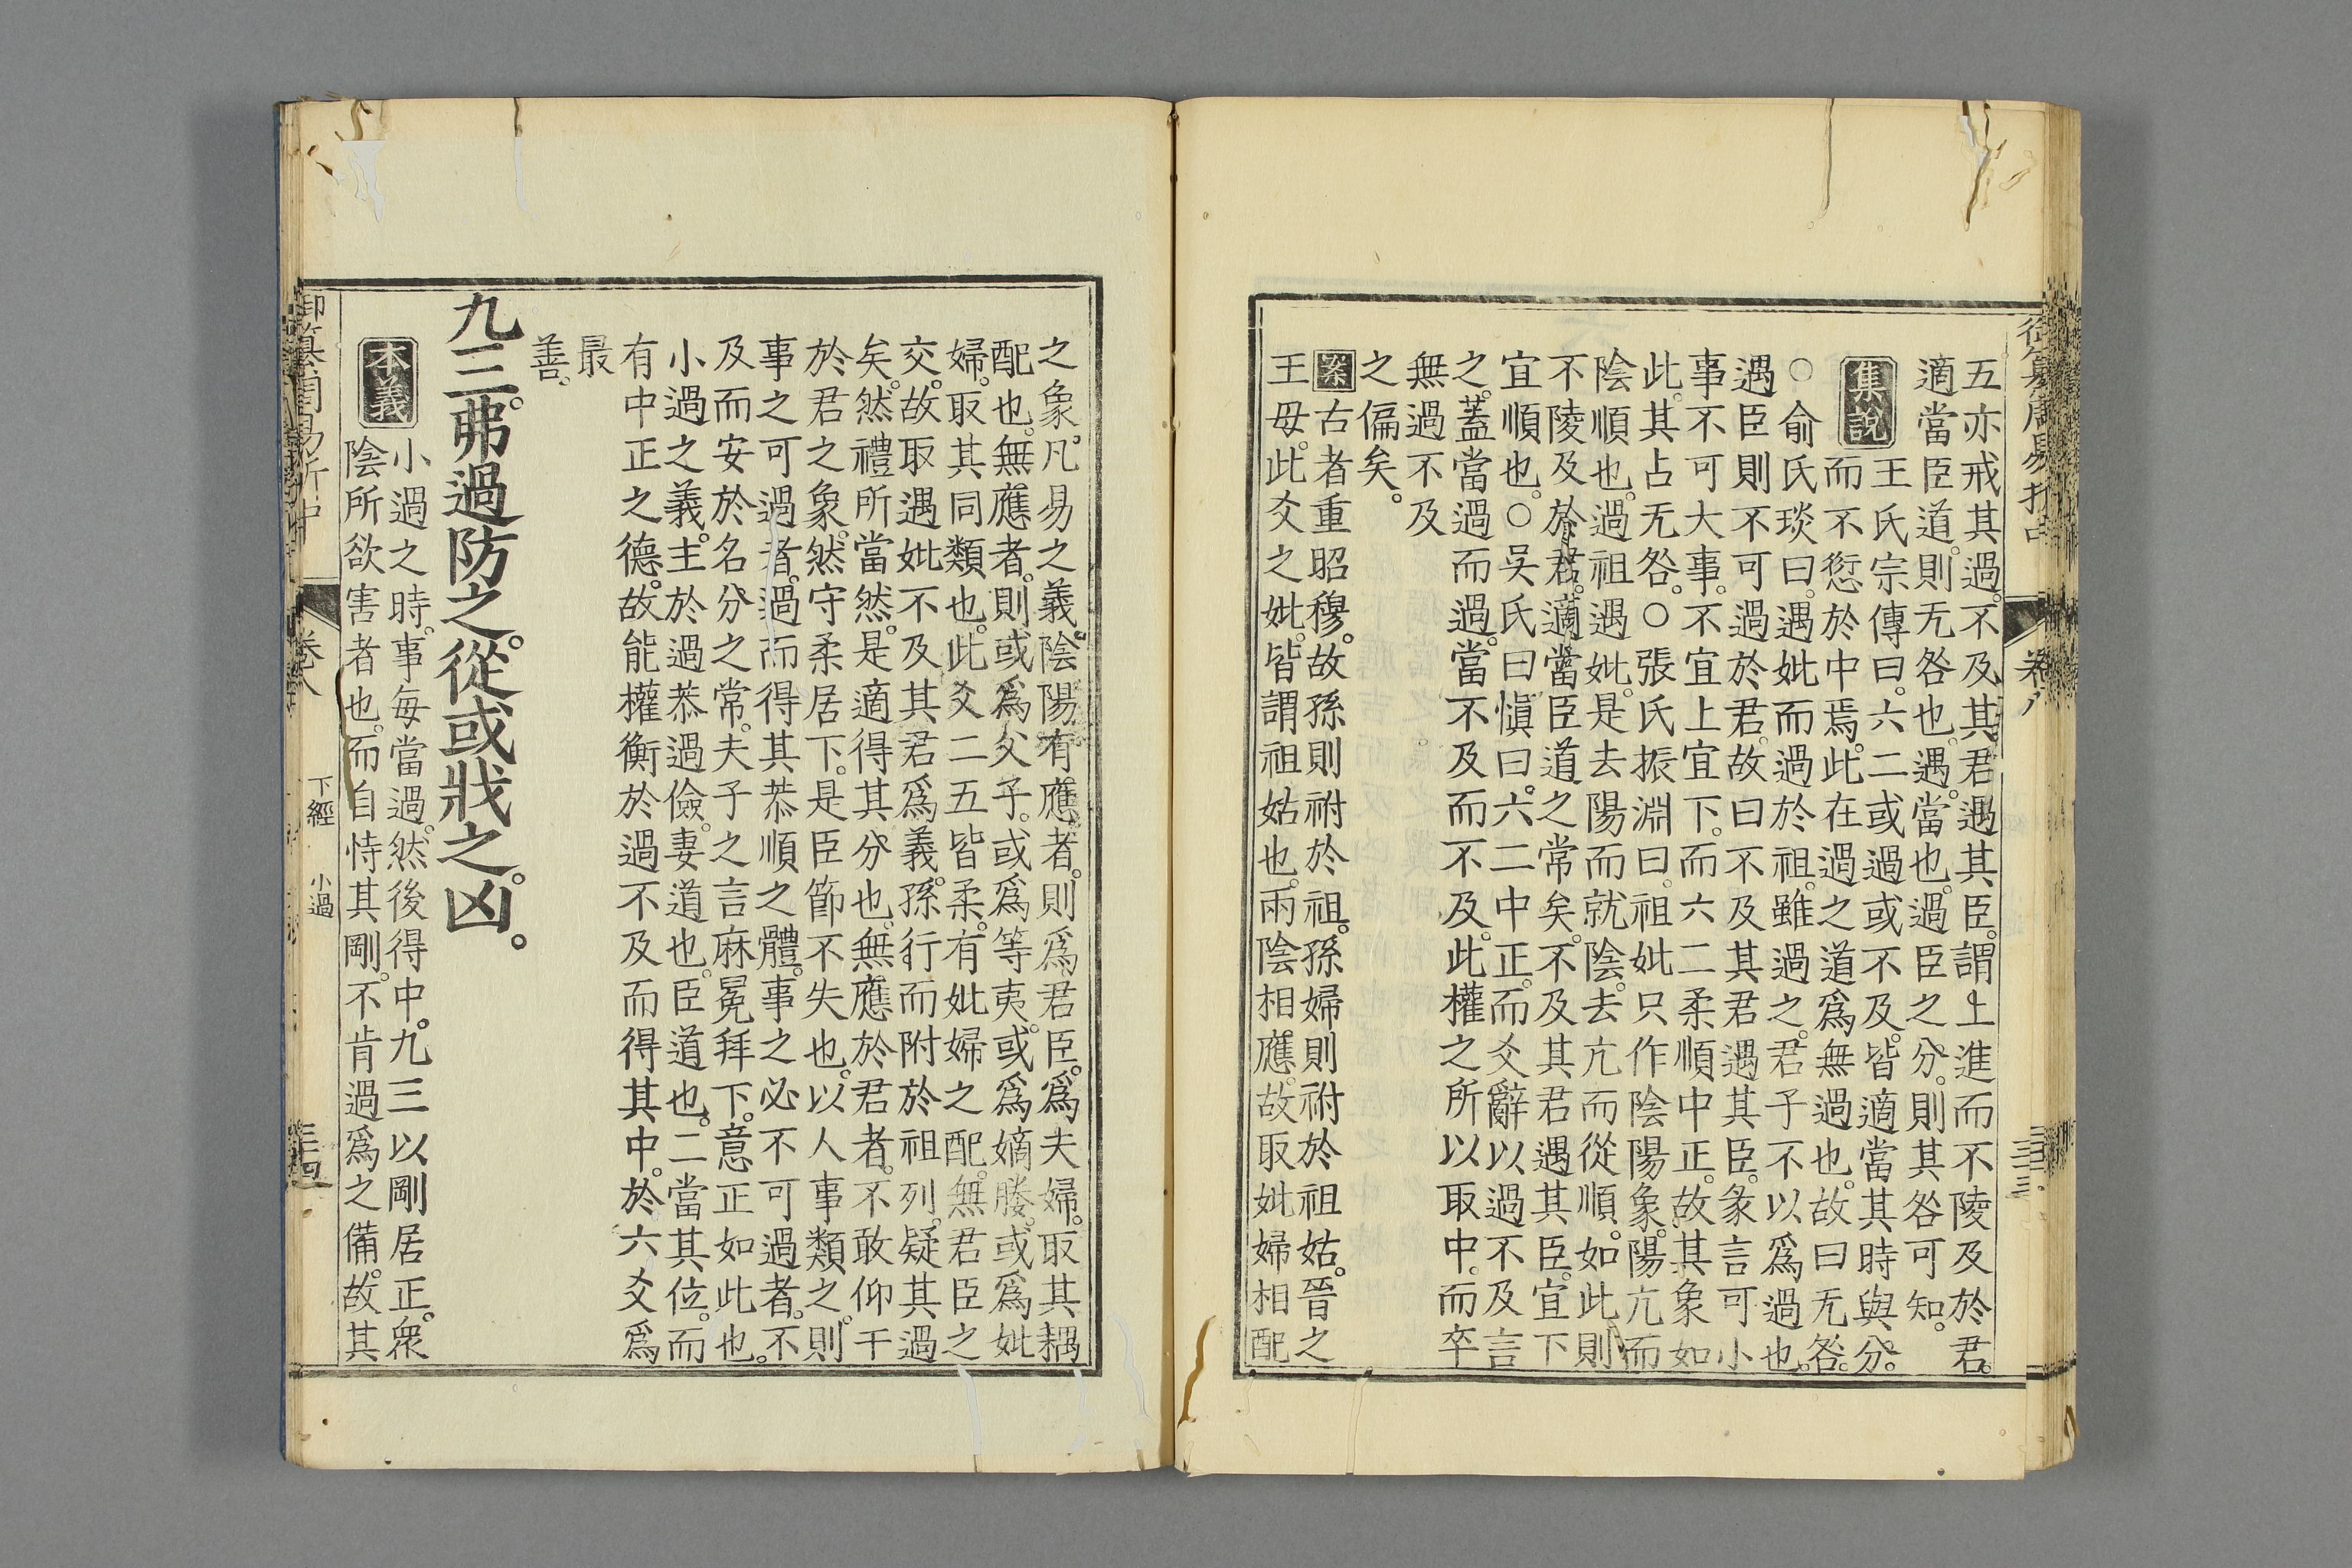 五亦戒其過不及其君遇其臣謂上進而不陵及於君
適當臣道則无咎也遇當也過臣之分則其咎可知
集說
王氏宗傳曰六二或過或不及皆適當其時與分
而不愆於中焉此在過之道爲無過也故曰无咎
○俞氏琰曰遇妣而過於祖雖過之君子不以爲過也
遇臣則不可過於君故曰不及其君遇其臣彖言可小
事不可大事不宜上宜下而六二柔順中正故其象如
此其占无咎○張氏振淵曰祖妣只作陰陽象陽亢而
陰順也過祖遇妣是去陽而就陰去亢而從順如此則
不陵及於君適當臣道之常矣不及其君遇其臣宜下
宜順也○吳氏曰愼曰六二中正而爻辭以過不及言
之蓋當過而過當不及而不及此權之所以取中而卒
無過不及
之偏矣
案
古者重昭穆故孫則祔於祖孫婦則祔於祖姑晉之
王母此爻之妣皆謂祖姑也兩陰相應故取妣婦相配
之象凡易之義陰陽有應者則爲君臣爲夫婦取其耦
配也無應者則或爲父子或爲等夷或爲嫡媵或爲妣
婦取其同類也此爻二五皆柔有妣婦之配無君臣之
交故取遇妣不及其君爲義孫行而附於祖列疑其過
矣然禮所當然是適得其分也無應於君者不敢仰干
於君之象然守柔居下是臣節不失也以人事類之則
事之可過者過而得其恭順之體事之必不可過者不
及而安於名分之常夫子之言麻冕拜下意正如此也
小過之義主於過恭過儉妻道也臣道也二當其位而
有中正之德故能權衡於過不及而得其中於六爻爲
最
善
九三弗過防之從或戕之凶
本義
小過之時事每當過然後得中九三以剛居正衆
陰所欲害者也而自恃其剛不肯過爲之備故其
卷八
下經 小過
三十四